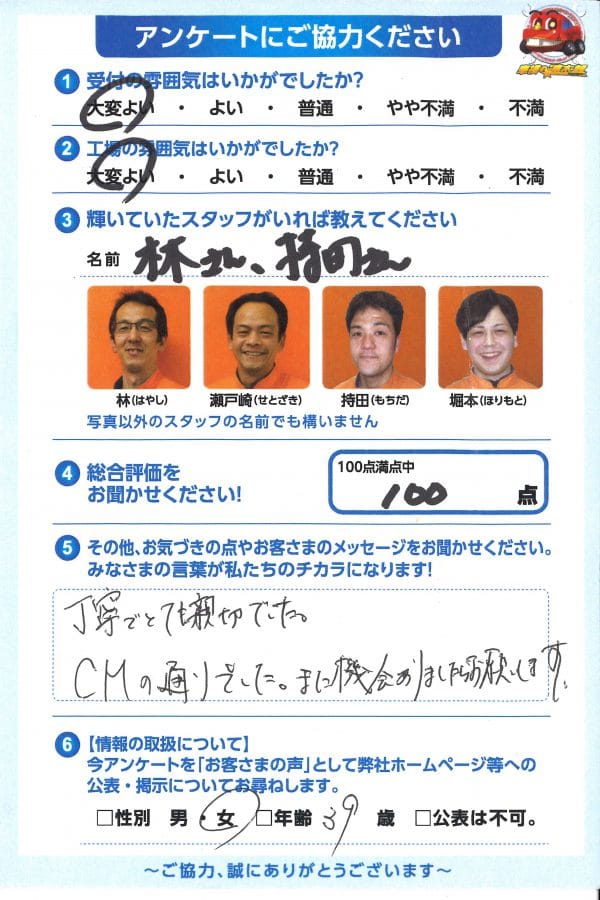 アンケートにご協力ください
1 受付の雰囲気はいかがでしたか?
大変よい ・ よい ・ 普通 ・ やや不満 ・ 不満
2 工場の雰囲気はいかがでしたか?
大変よい ・ よい ・ 普通 ・ やや不満 ・ 不満
3 輝いていたスタッフがいれば教えてください
名前 林さん、持田さん
林(はやし) 瀬戸崎(せとざき) 持田(もちだ) 堀本(ほりもと)
写真以外のスタッフの名前でも構いません
4 総合評価を
お聞かせください!
100点満点中
100 点
5 その他、お気づきの点やお客さまのメッセージをお聞かせください。
みなさまの言葉が私たちのチカラになります!
丁寧でとても親切でした。
CMの通りでした。また機会ありましたらお願いします。
6 【情報の取扱について】
今アンケートを「お客さまの声」として弊社ホームページ等への
公表・掲示についてお尋ねします。
□性別 男・女 □年齢 39 歳 □公表は不可。
~ご協力、誠にありがとうございます~